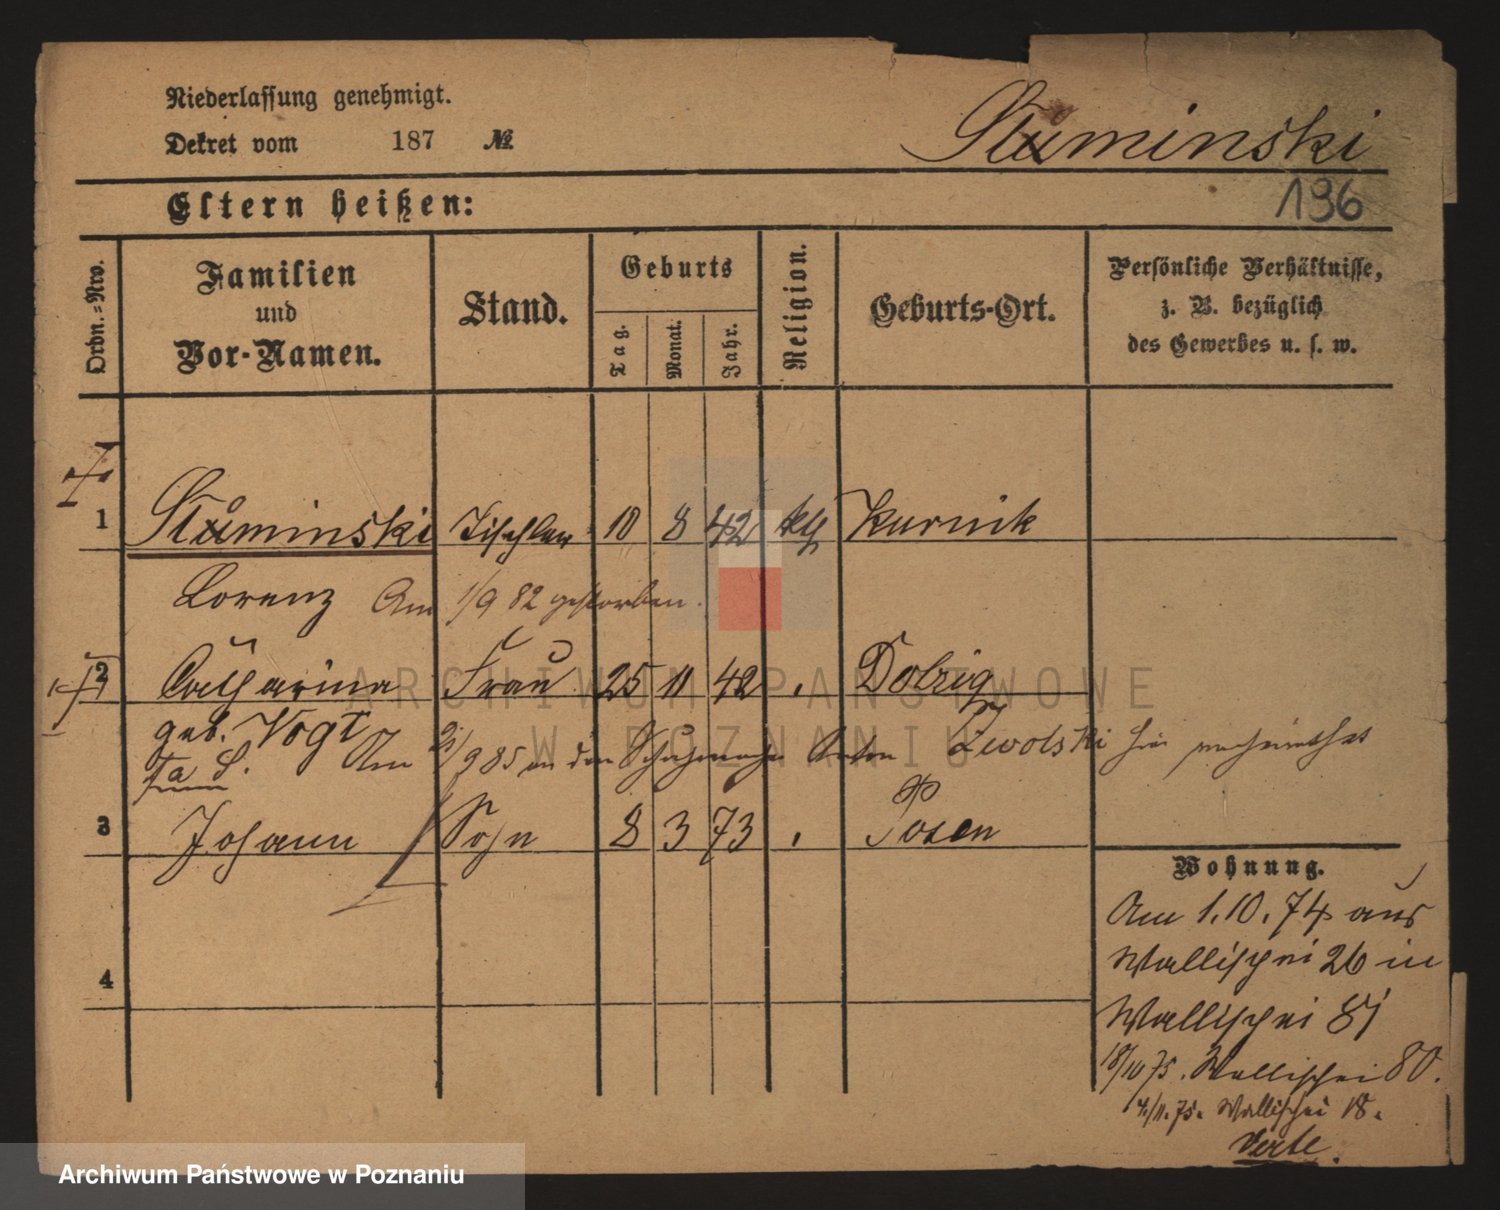 Niederlassung genehmigt.
Dekret vom 187 №
Stuminski
196
Eltern heißen:
Ordn.-Nro.
Familien
und
Vor-Namen.
Stand.
Geburts
Tag.
Monat.
Jahr.
Religion.
Geburts-Ort.
Persönliche Verhältnisse,
z. B. bezüglich
des Gewerbes u. s. w.
1 Stuminski Tischler 10 8 42 kth Kurnik
Lorenz Am 1/9 82 gestorben.
2 Catharina Frau 25 11 42 Dobrig
geb. Vogt
Am /9 85 an den Schuhmacher Anton Zwolski hier verheirathet
3 Johann Sohn 8 3 73 Posen
4
Wohnung.
Am 1.10.74 aus
Wallischei 26 in
Wallischei 81
18/10 75. Wallischei 80.
4/11.75. Wallischei 18.
verte.
ARCHIWUM PAŃSTWOWE
W POZNANIU
Archiwum Państwowe w Poznaniu